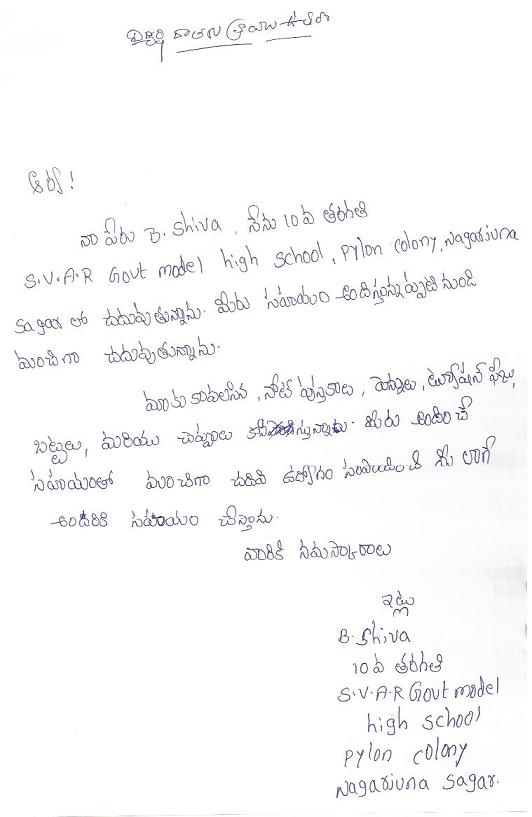 దాతలకు
ఆర్య!
నా పేరు B. Shiva, నేను 10వ తరగతి
S.V.A.R Govt model high school, pylon colony, Nagarjuna
Sagar లో చదువుతున్నాను. మీరు సహాయం అందిస్తున్నప్పటి నుండి
మంచిగా చదువుతున్నాను.
మాకు కావలసిన, నోట్ పుస్తకాలు, పెన్నులు, ట్యూషన్ ఫీజు,
బట్టలు, మరియు చెప్పులు మీరు అందించే
సహాయంతో మంచిగా చదివి ఉద్యోగం సంపాయించి మీ లాగే
అందరికి సహాయం చేస్తాను.
వారికి నమస్కారాలు
ఇట్లు
B. Shiva
10వ తరగతి
S.V.A.R Govt model
high school
pylon colony
Nagarjuna Sagar.